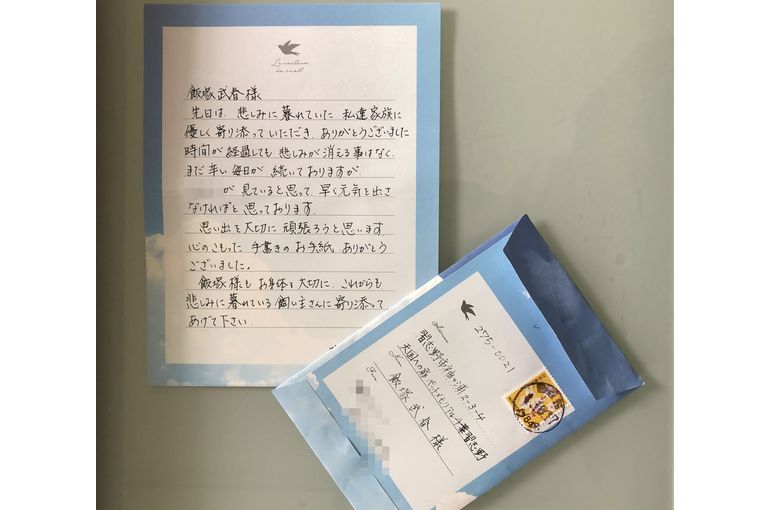 飯塚武春様
先日は、悲しみに暮れていた 私達家族に
優しく寄り添っていただき、ありがとうございました
時間が経過しても 悲しみが消える事はなく、
まだ辛い毎日が 続いておりますが、
が 見ていると思って、早く元気を出さ
なければと 思っております。
思い出を大切に 頑張ろうと思います。
心のこもった 手書きのお手紙、ありがとう
ございました。
飯塚様も お身体を大切に、これからも
悲しみに暮れている 飼い主さんに寄り添って
あげて下さい。
275-0021
習志野市袖ケ浦2-3-4
天国への扉 ペットメモリアル千葉習志野
飯塚 武春 様